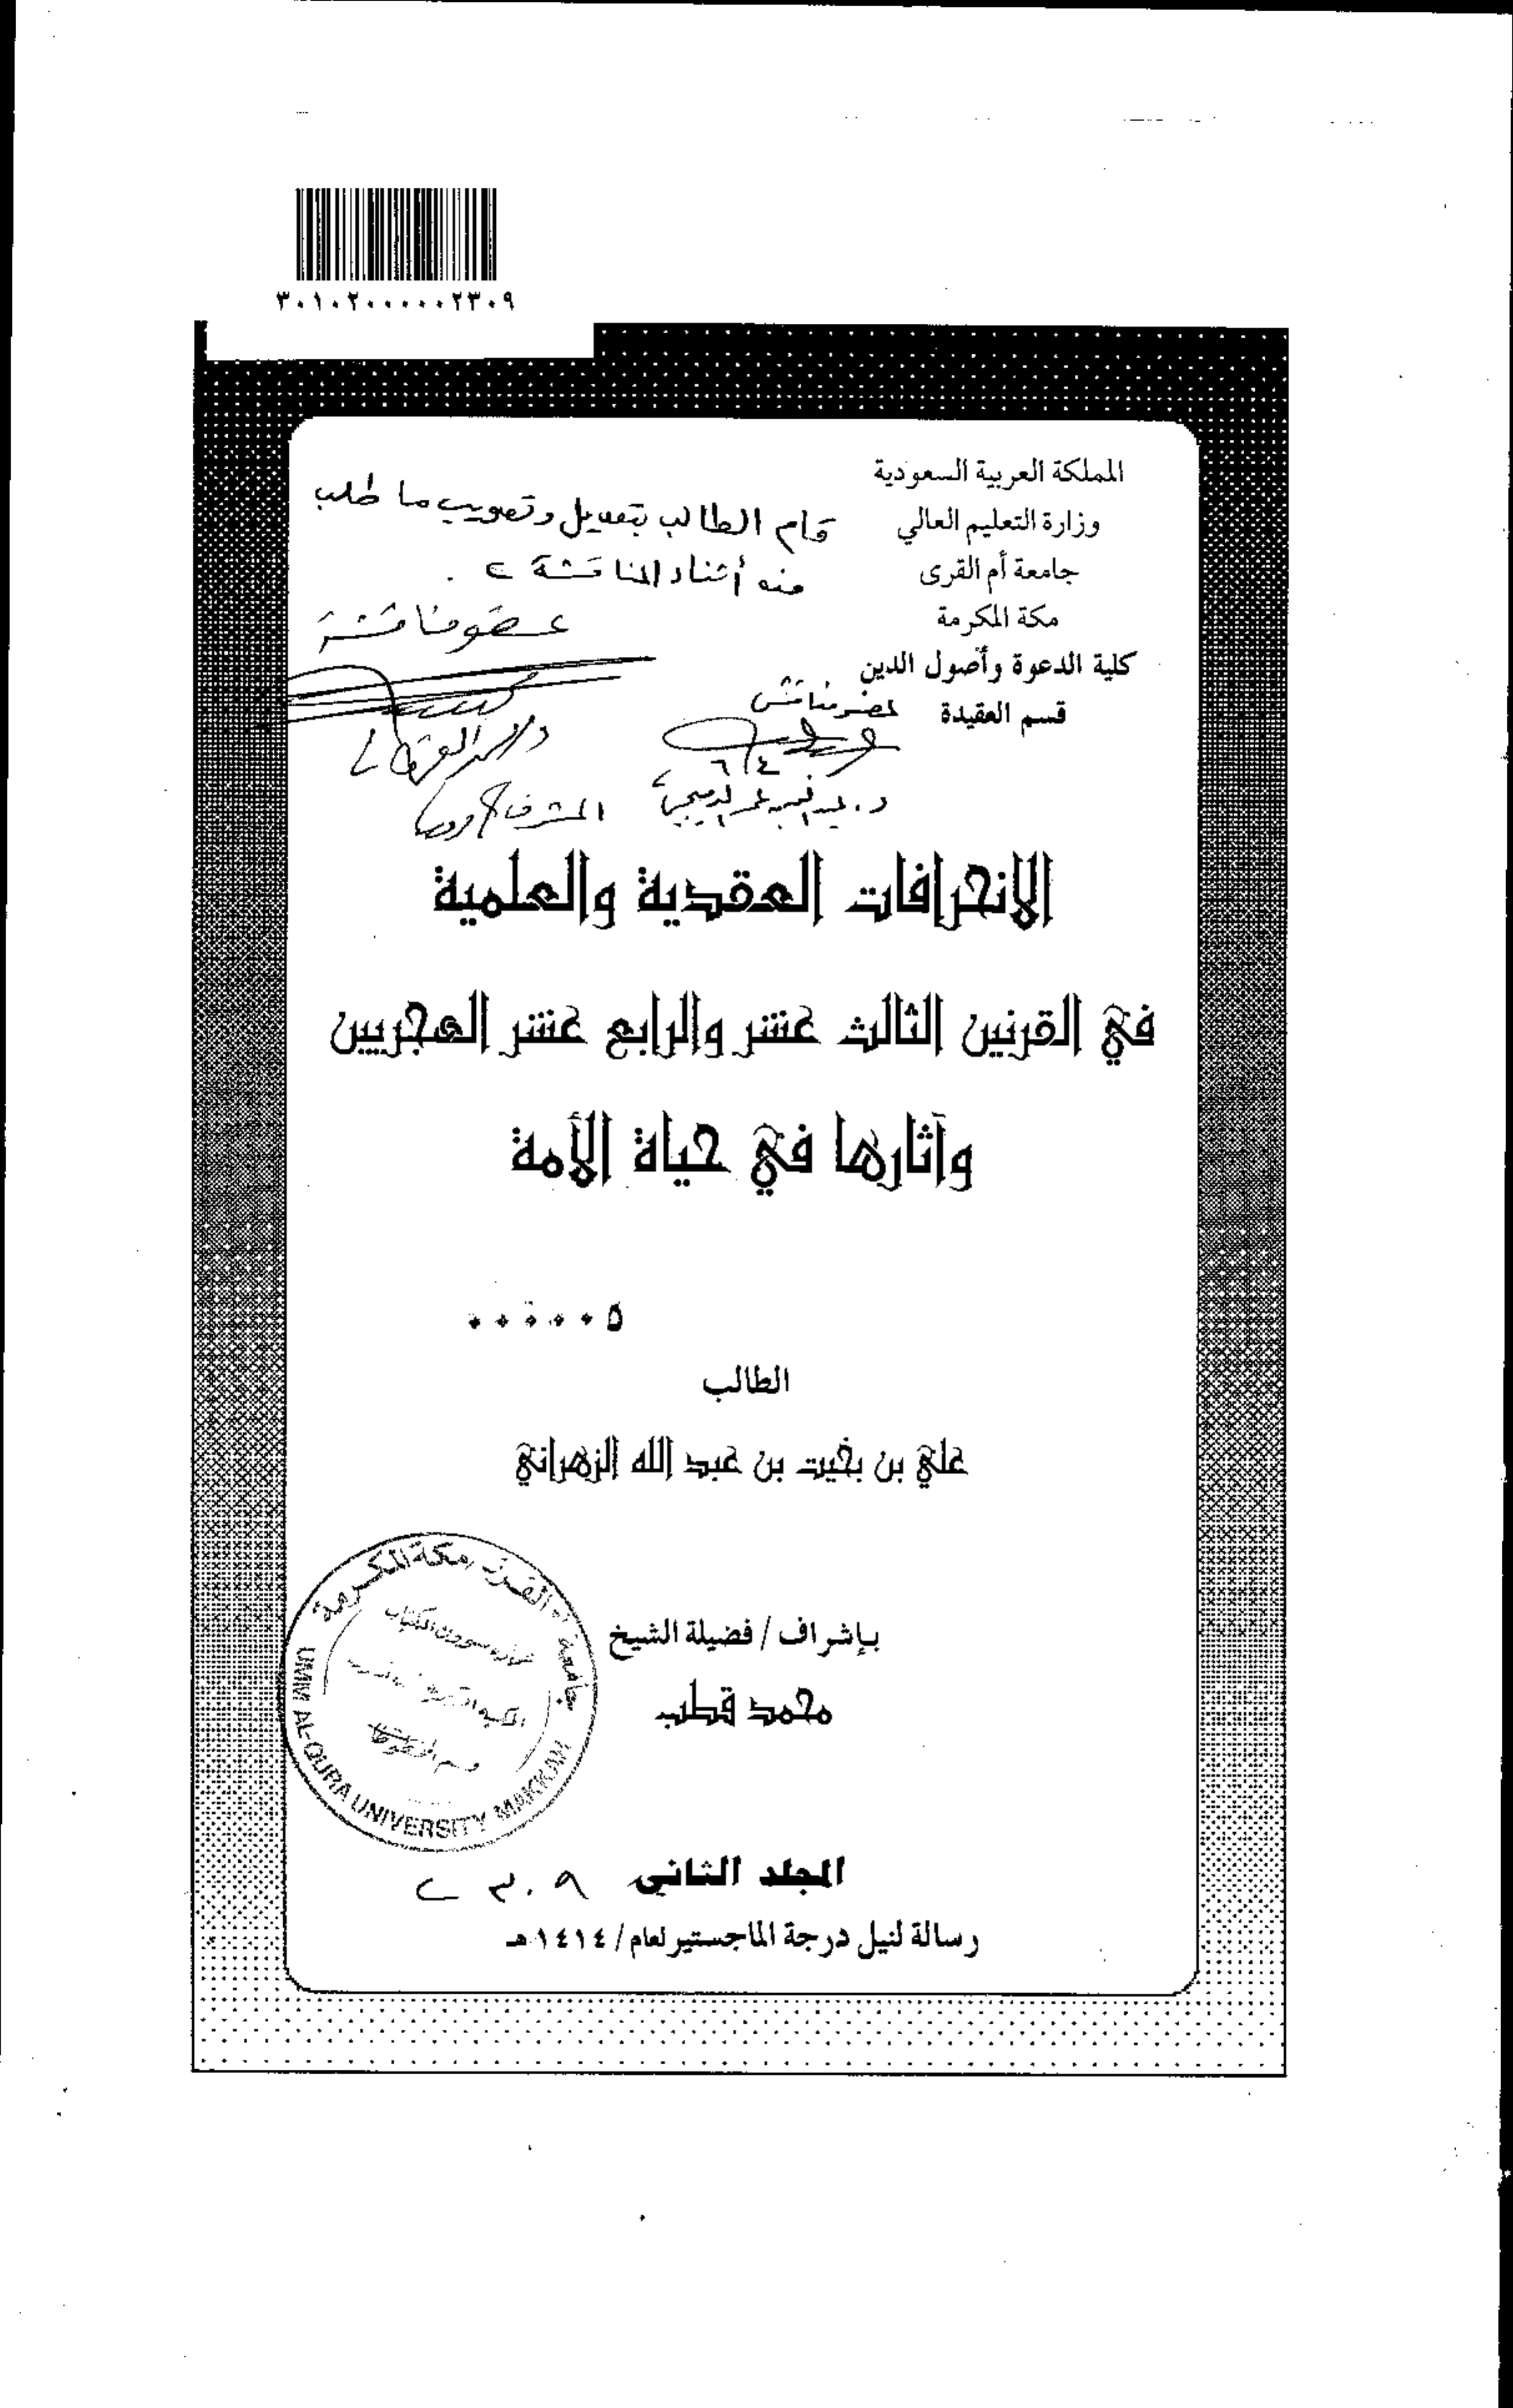 ٣٠١٠٢٠٠٠٠٠٢٣٠٩
المملكة العربية السعودية
وزارة التعليم العالي
جامعة أم القرى
مكة المكرمة
كلية الدعوة وأصول الدين
قسم العقيدة
قام الطالب بتعديل وتصويب ما طلب
منه أثناء المناقشة
عضو مناقشة
عضو مناقش
٦/٤
المشرف
الانحرافات العقدية والعلمية
في القرنين الثالث عشر والرابع عشر الهجريين
وآثارها في حياة الأمة
٠٠٠٠٠٥
الطالب
علي بن بخيت بن عبد الله الزهراني
بإشراف / فضيلة الشيخ
محمد قطب
جامعة أم القرى مكة المكرمة
UMM AL-QURA UNIVERSITY MAKKAH
المجلد الثاني ٢٣٠٩
رسالة لنيل درجة الماجستير لعام / ١٤١٤هـ